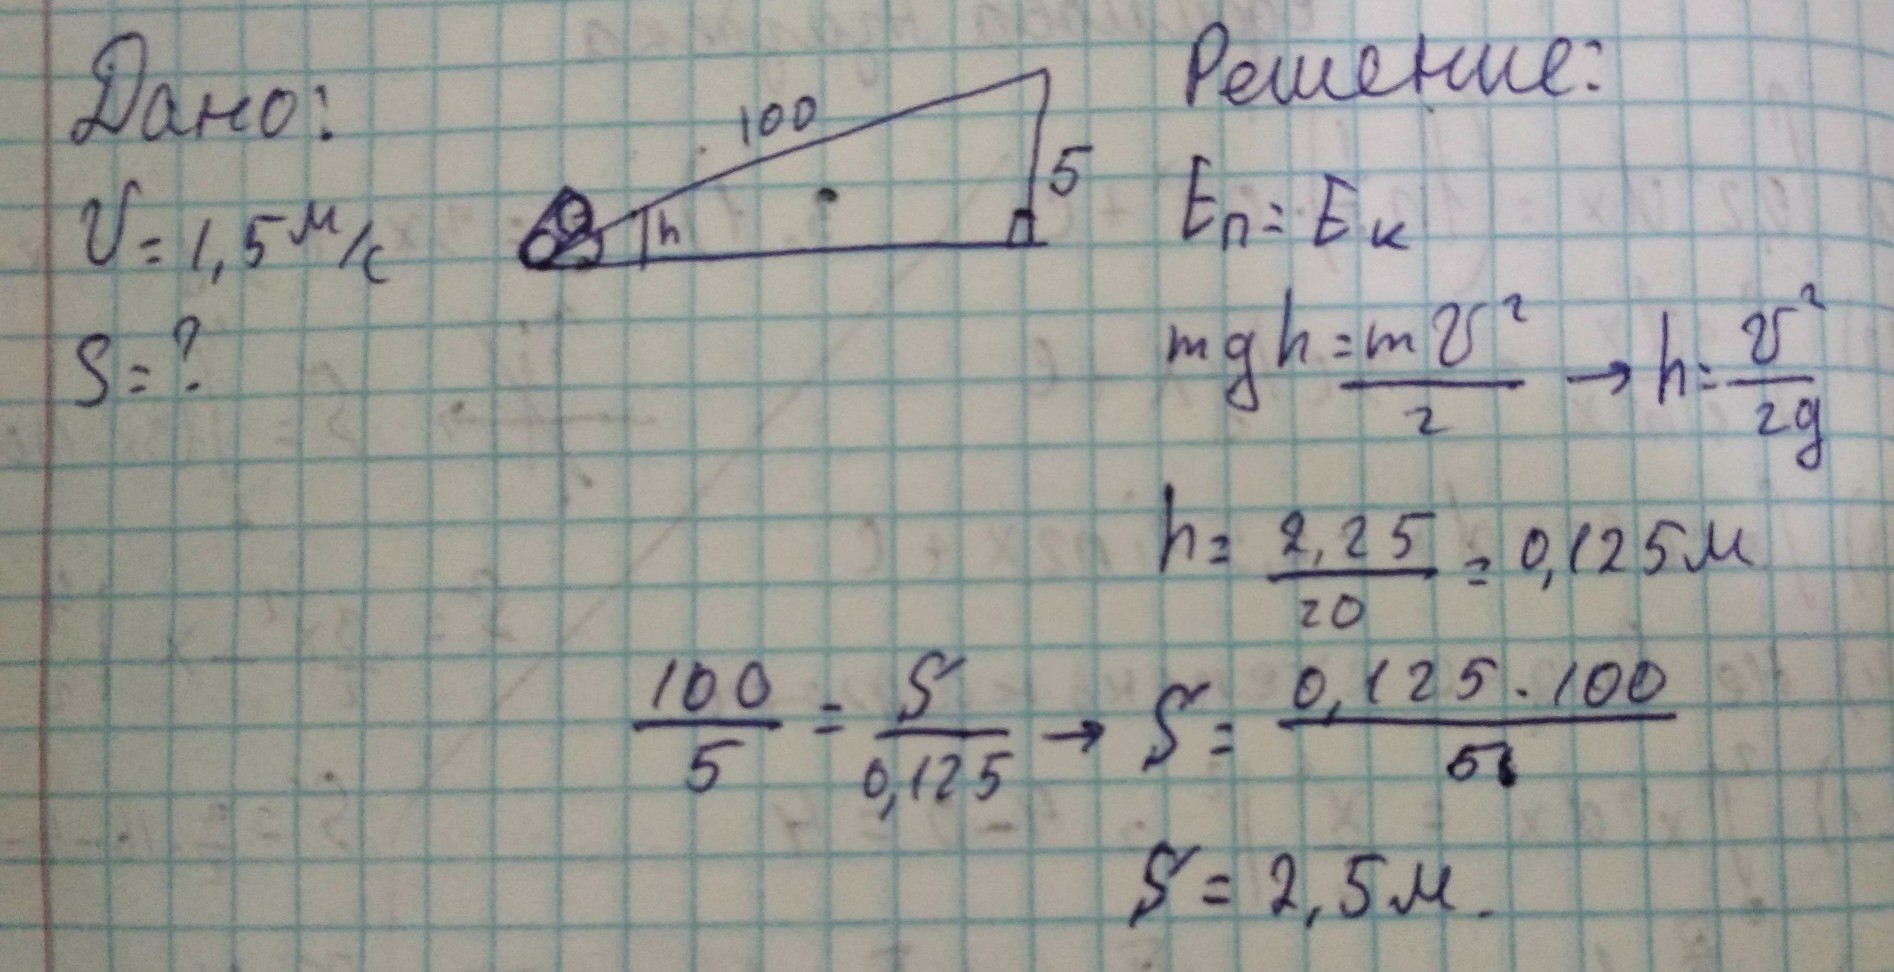 Дано:
V = 1,5 м/с
S = ?
100
5
h
Решение:
Eп = Eк
mgh = mV²/2 → h = V²/2g
h = 2,25/20 = 0,125 м
100/5 = S/0,125 → S = 0,125 · 100/5
S = 2,5 м.